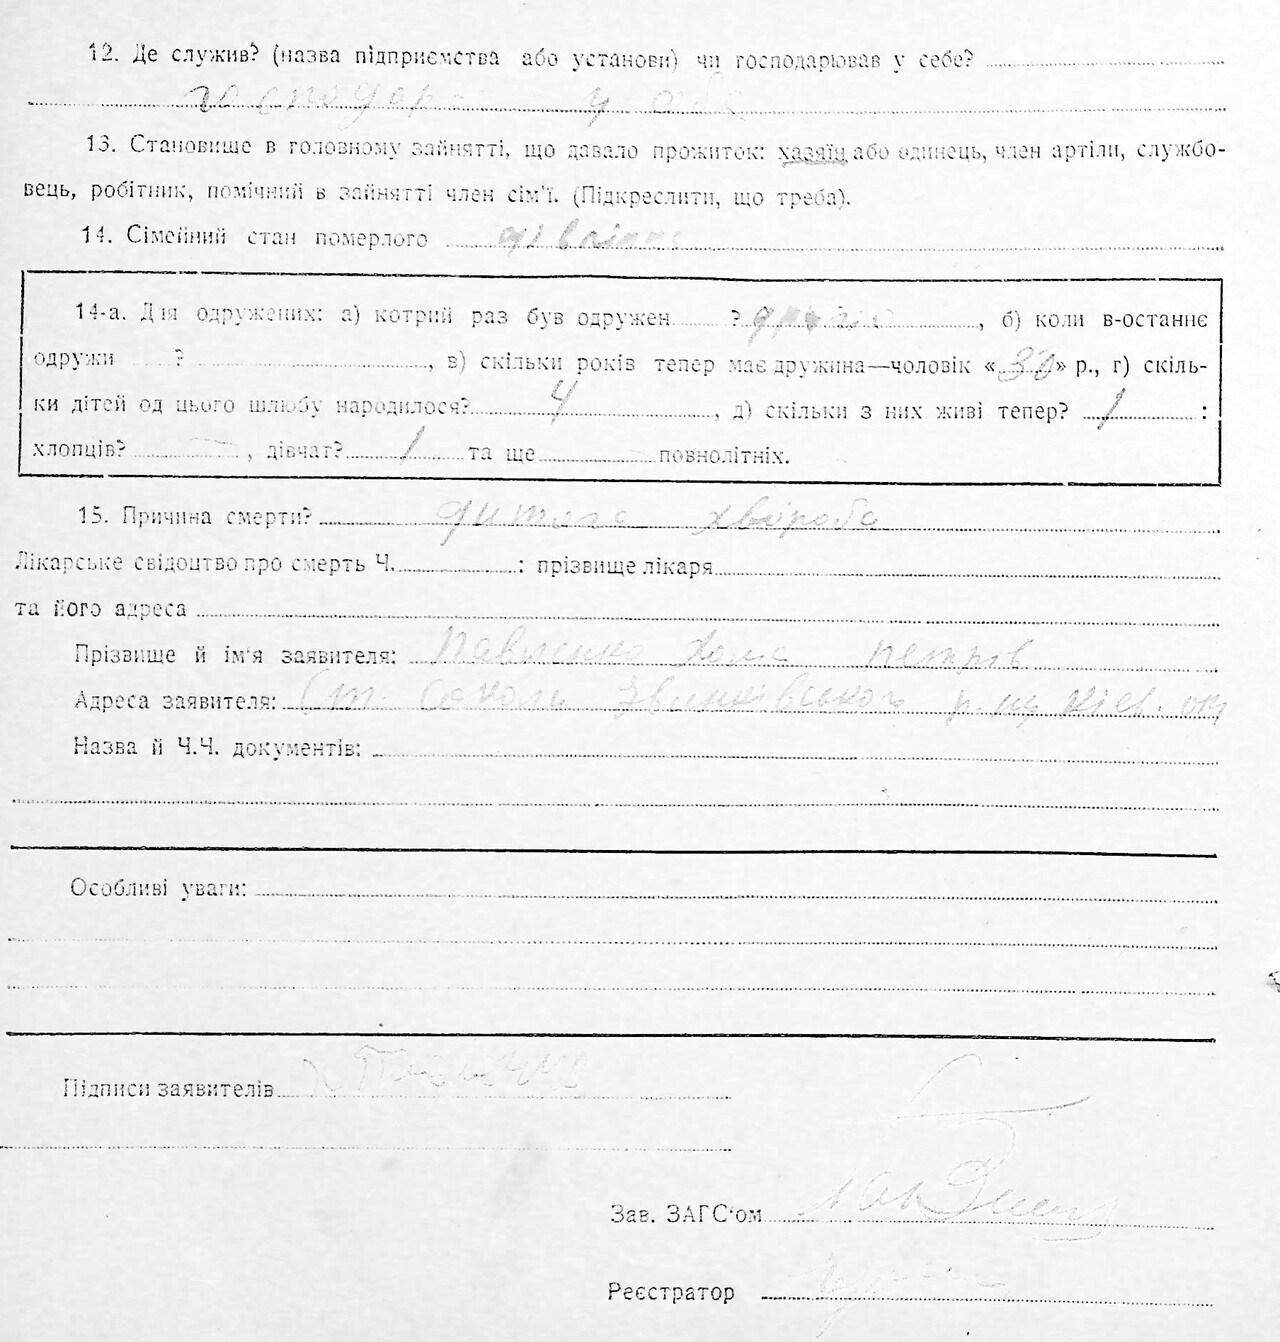 12. Де служив? (назва підприємства або установи) чи господарював у себе?
у себе
13. Становище в головному зайнятті, що давало прожиток: хазяїн або одинець, член артіли, службо-
вець, робітник, помічний в зайнятті член сім'ї. (Підкреслити, що треба).
14. Сімейний стан померлого
14-а. Для одружених: а) котрий раз був одружен ? , б) коли в-останнє
одружи ? , в) скільки років тепер має дружина—чоловік «30» р., г) скіль-
ки дітей од цього шлюбу народилося? 4 , д) скільки з них живі тепер? 1 :
хлопців? — , дівчат? 1 та ще — повнолітніх.
15. Причина смерти? хвороба
Лікарське свідоцтво про смерть Ч. : прізвище лікаря
та його адреса
Прізвище й ім'я заявителя: Павленко Хома Петров
Адреса заявителя:
Назва й Ч.Ч. документів:
Особливі уваги:
Підписи заявителів
Зав. ЗАГС'ом
Реєстратор